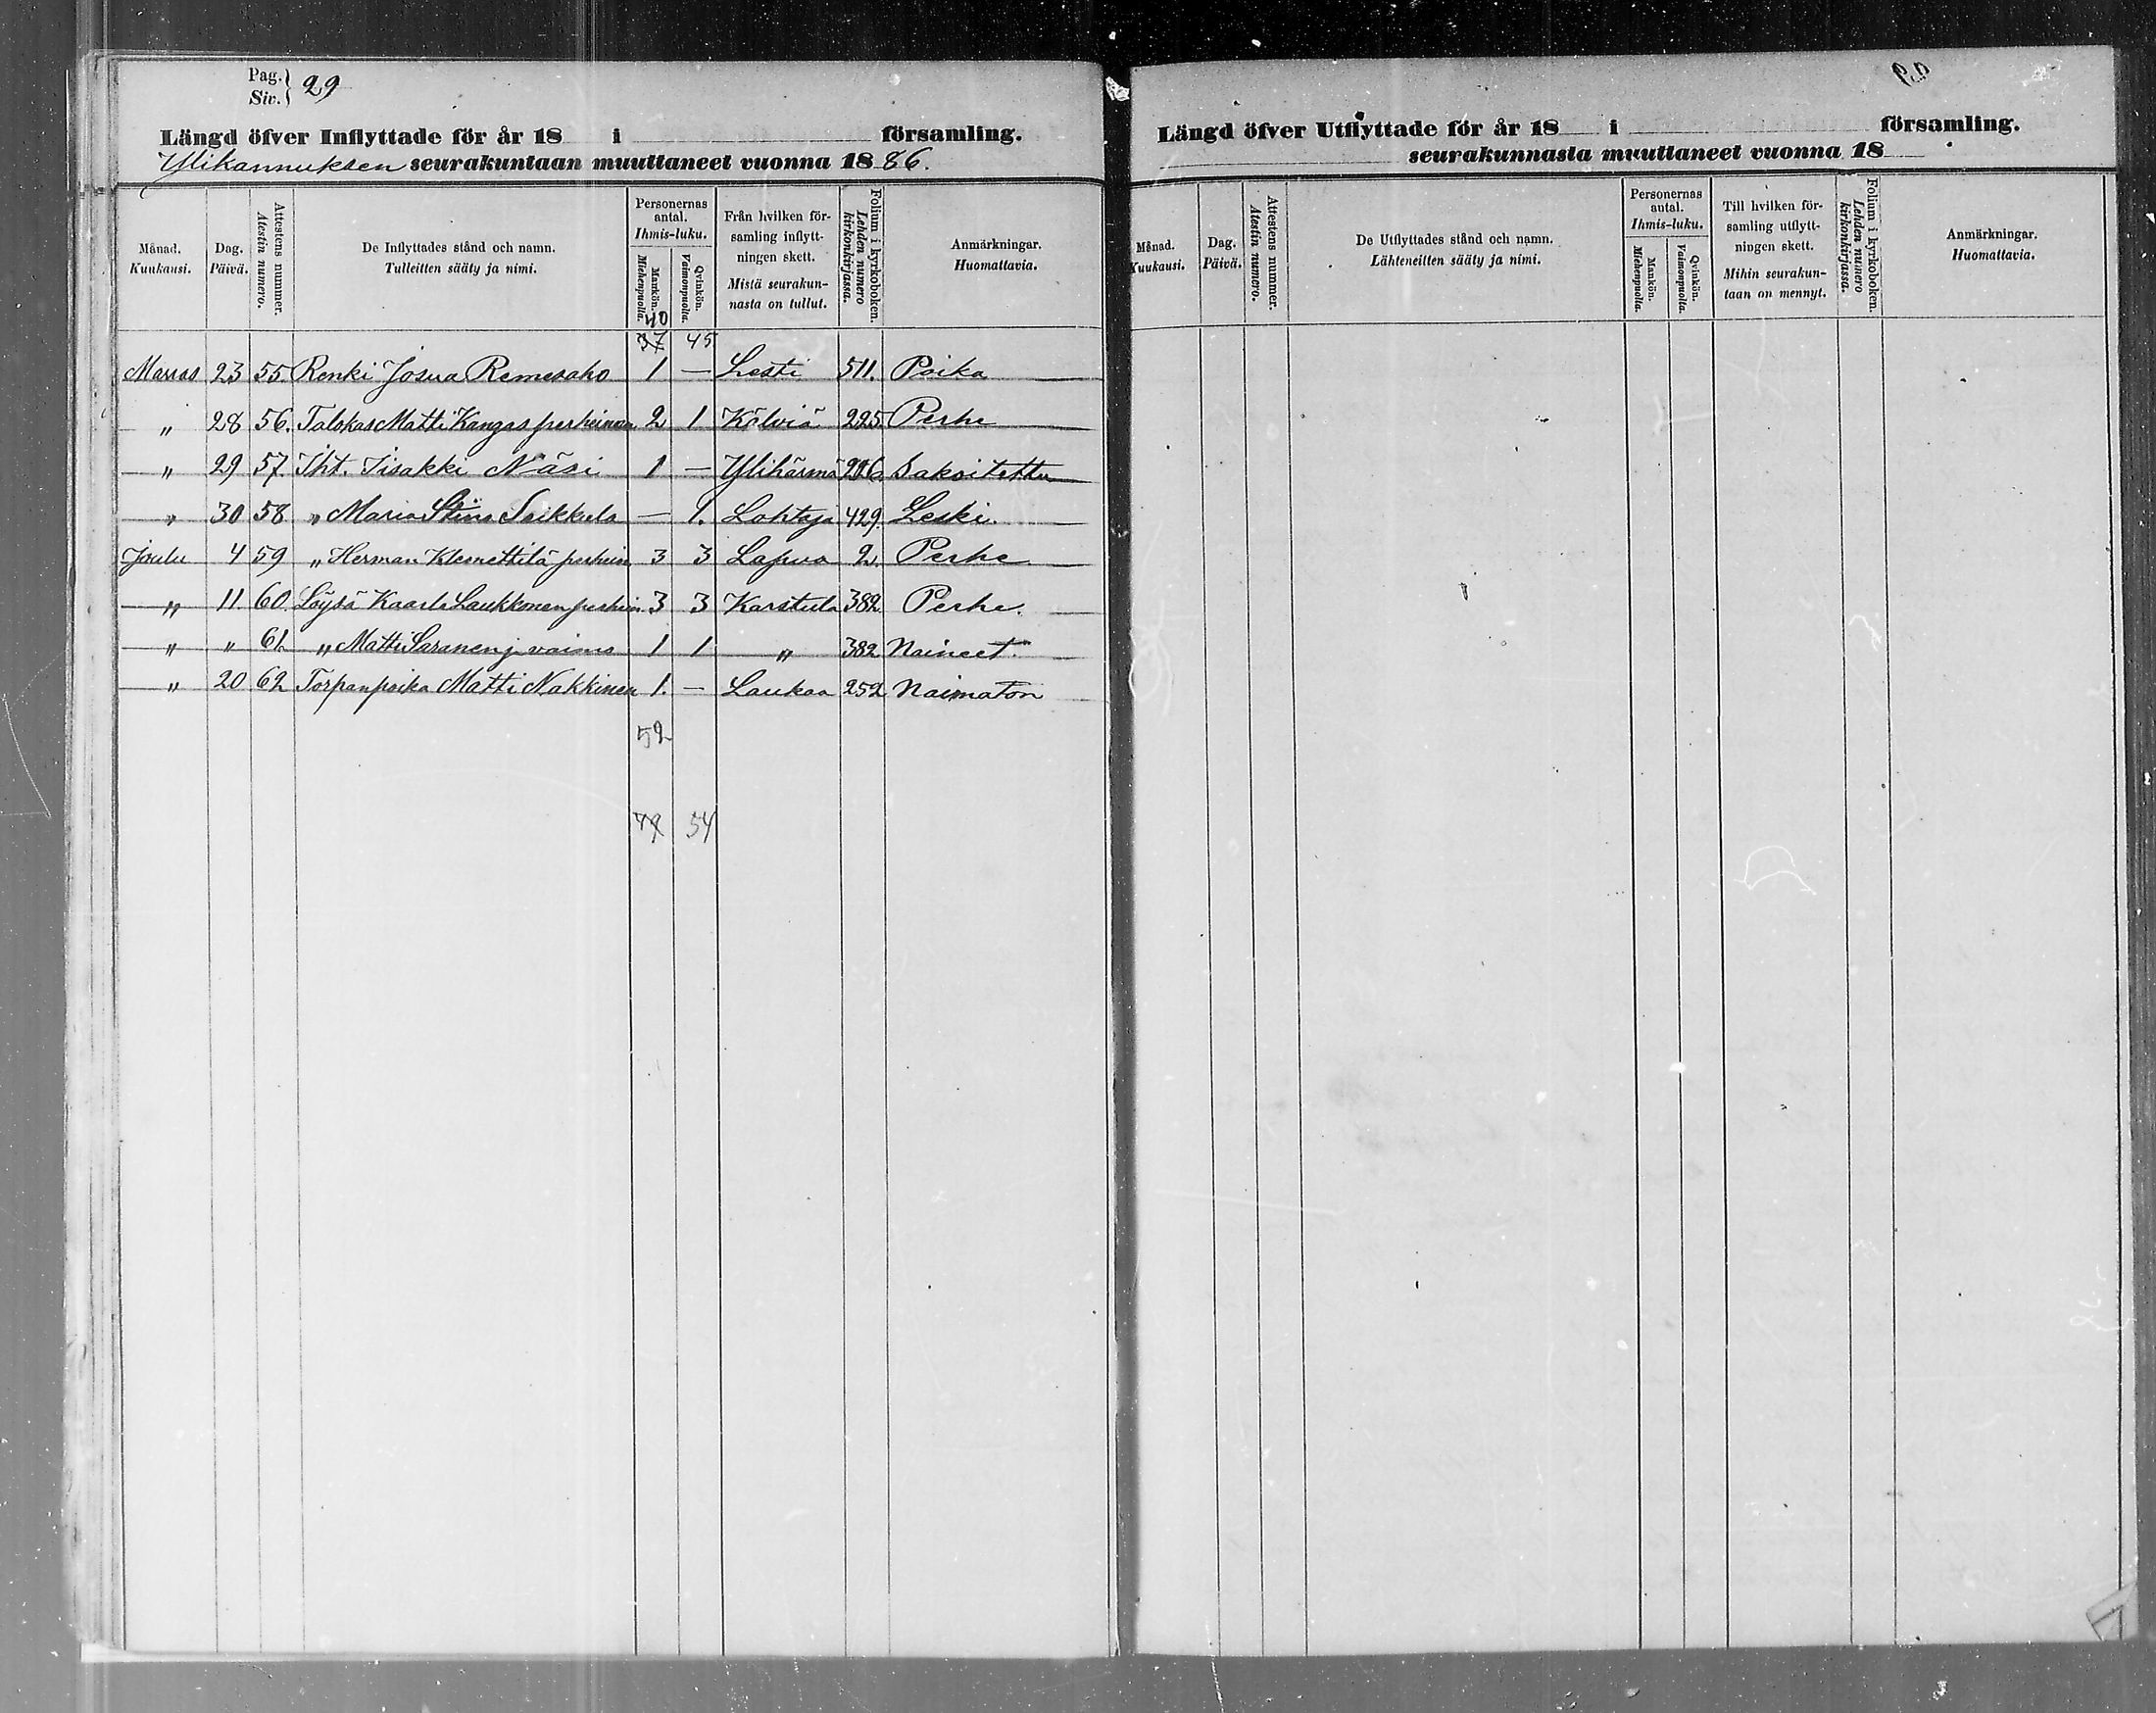 Pag. 29
Siv.
Längd öfver Inflyttade för år 18 i församling.
Ylikannuksen seurakuntaan muuttaneet vuonna 1886.
Månad. Kuukausi. Dag. Päivä. Attestens nummer. Atestin numero. De Inflyttades stånd och namn. Tulleitten sääty ja nimi. Personernas antal. Ihmis-luku. Mankön. Miehenpuolia. Qvinkön. Vaimonpuolia. Från hvilken församling inflyttningen skett. Mistä seurakunnasta on tullut. Folium i kyrkoboken. Lehden numero kirkonkirjassa. Anmärkningar. Huomattavia.
40
37 45
Marras 23 55. Renki Josua Remesaho 1 — Lesti 511. Poika
" 28 56. Talokas Matti Kangas perheineen 2 1 Kälviä 225 Perhe
" 29 57. Iht. Iisakki Näsi 1 — Ylihärmä 296. Sakoitettu
" 30 58 " Maria Stina Saikkula — 1. Lohtaja 429. Leski.
Joulu 4 59 " Herman Klemettilä perhein 3 3 Lapua 2. Perhe
" 11. 60. Löysä Kaarle Laukkonen perhein. 3 3 Karstula 382. Perhe.
" " 61. " Matti Saranen j. vaimo 1 1 " 382 Naineet.
" 20 62 Torpanpoika Matti Nakkinen 1. — Laukaa 252 Naimaton
52
54
Längd öfver Utflyttade för år 18 i församling.
seurakunnasta muuttaneet vuonna 18
Månad. Kuukausi. Dag. Päivä. Attestens nummer. Atestin numero. De Utflyttades stånd och namn. Lähteneitten sääty ja nimi. Personernas antal. Ihmis-luku. Mankön. Miehenpuolia. Qvinkön. Vaimonpuolia. Till hvilken församling utflyttningen skett. Mihin seurakuntaan on mennyt. Folium i kyrkoboken. Lehden numero kirkonkirjassa. Anmärkningar. Huomattavia.